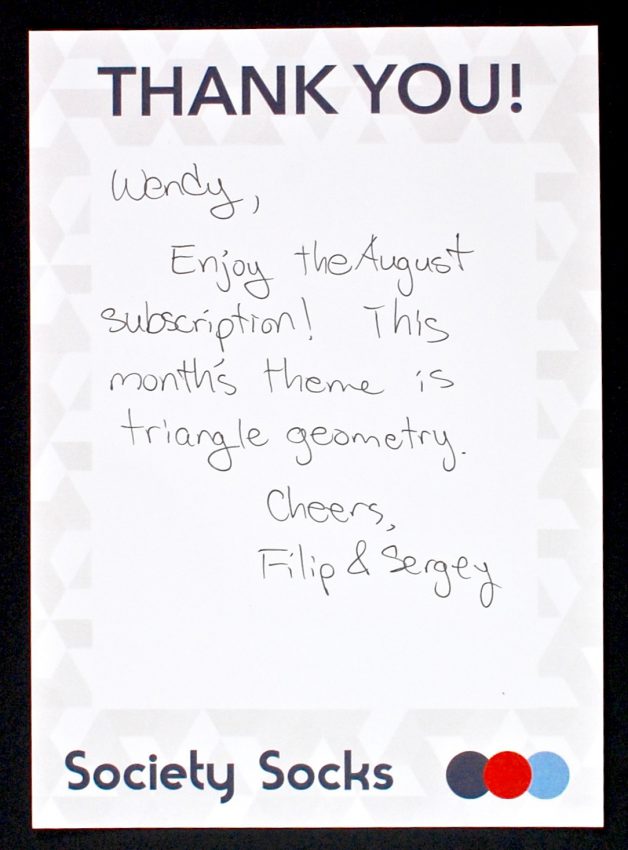 THANK YOU!
Wendy,
Enjoy the August
subscription! This
month's theme is
triangle geometry.
Cheers,
Filip & Sergey
Society Socks